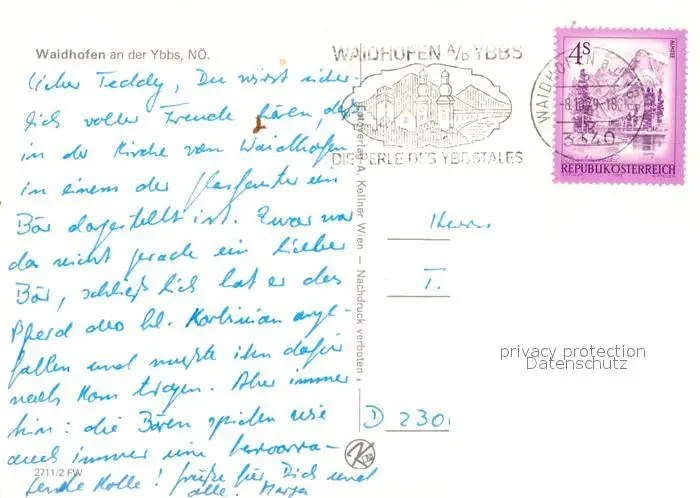 Waidhofen an der Ybbs, NÖ.
Lieber Teddy, Du wirst sicher-
lich voller Freude hören, daß
in der Kirche von Waidhofen
in einem der Glasfenster ein
Bär dargestellt ist. Zwar war
das nicht gerade ein lieber
Bär, schließlich hat er das
Pferd des hl. Korbinian ange-
fallen und mußte ihn dafür
nach Rom tragen. Aber immer-
hin: die Bären spielen wie
auch immer eine hervorra-
gende Rolle! Grüße für Dich und
alle,
2711/2 FW
Fotoverlag A. Kellner Wien — Nachdruck verboten
WAIDHOFEN A/D YBBS
DIE PERLE DES YBBSTALES
WAIDHOFEN a. d.
3340
4S
ALMSEE
REPUBLIK ÖSTERREICH
Herrn
T.
D 230
privacy protection
Datenschutz